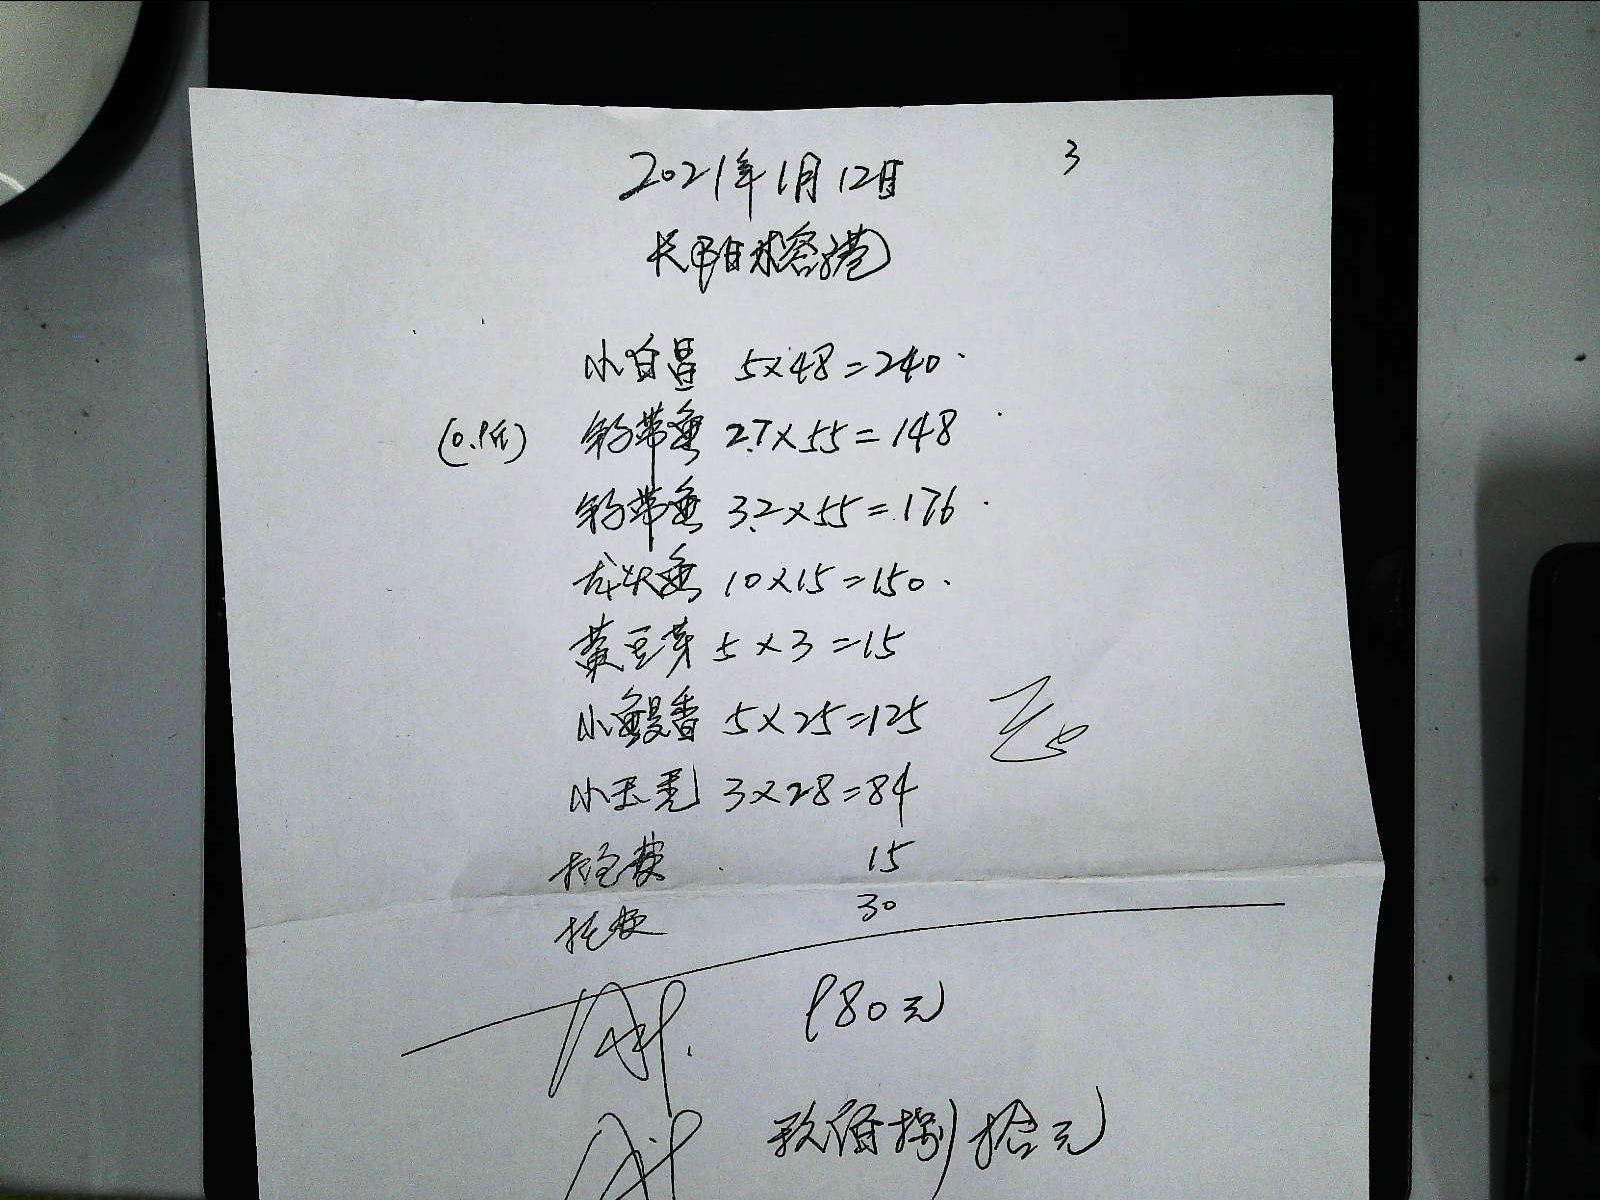 2021年1月12日 3
长阳林容港
小白昌 5×48=240.
(0.9斤) 钓带鱼 2.7×55=148
钓带鱼 3.2×55=176
龙头鱼 10×15=150.
黄豆芽 5×3=15
小鳗香 5×25=125
小玉秃 3×28=84
打包费 15
托费 30
980元
玖佰捌拾元